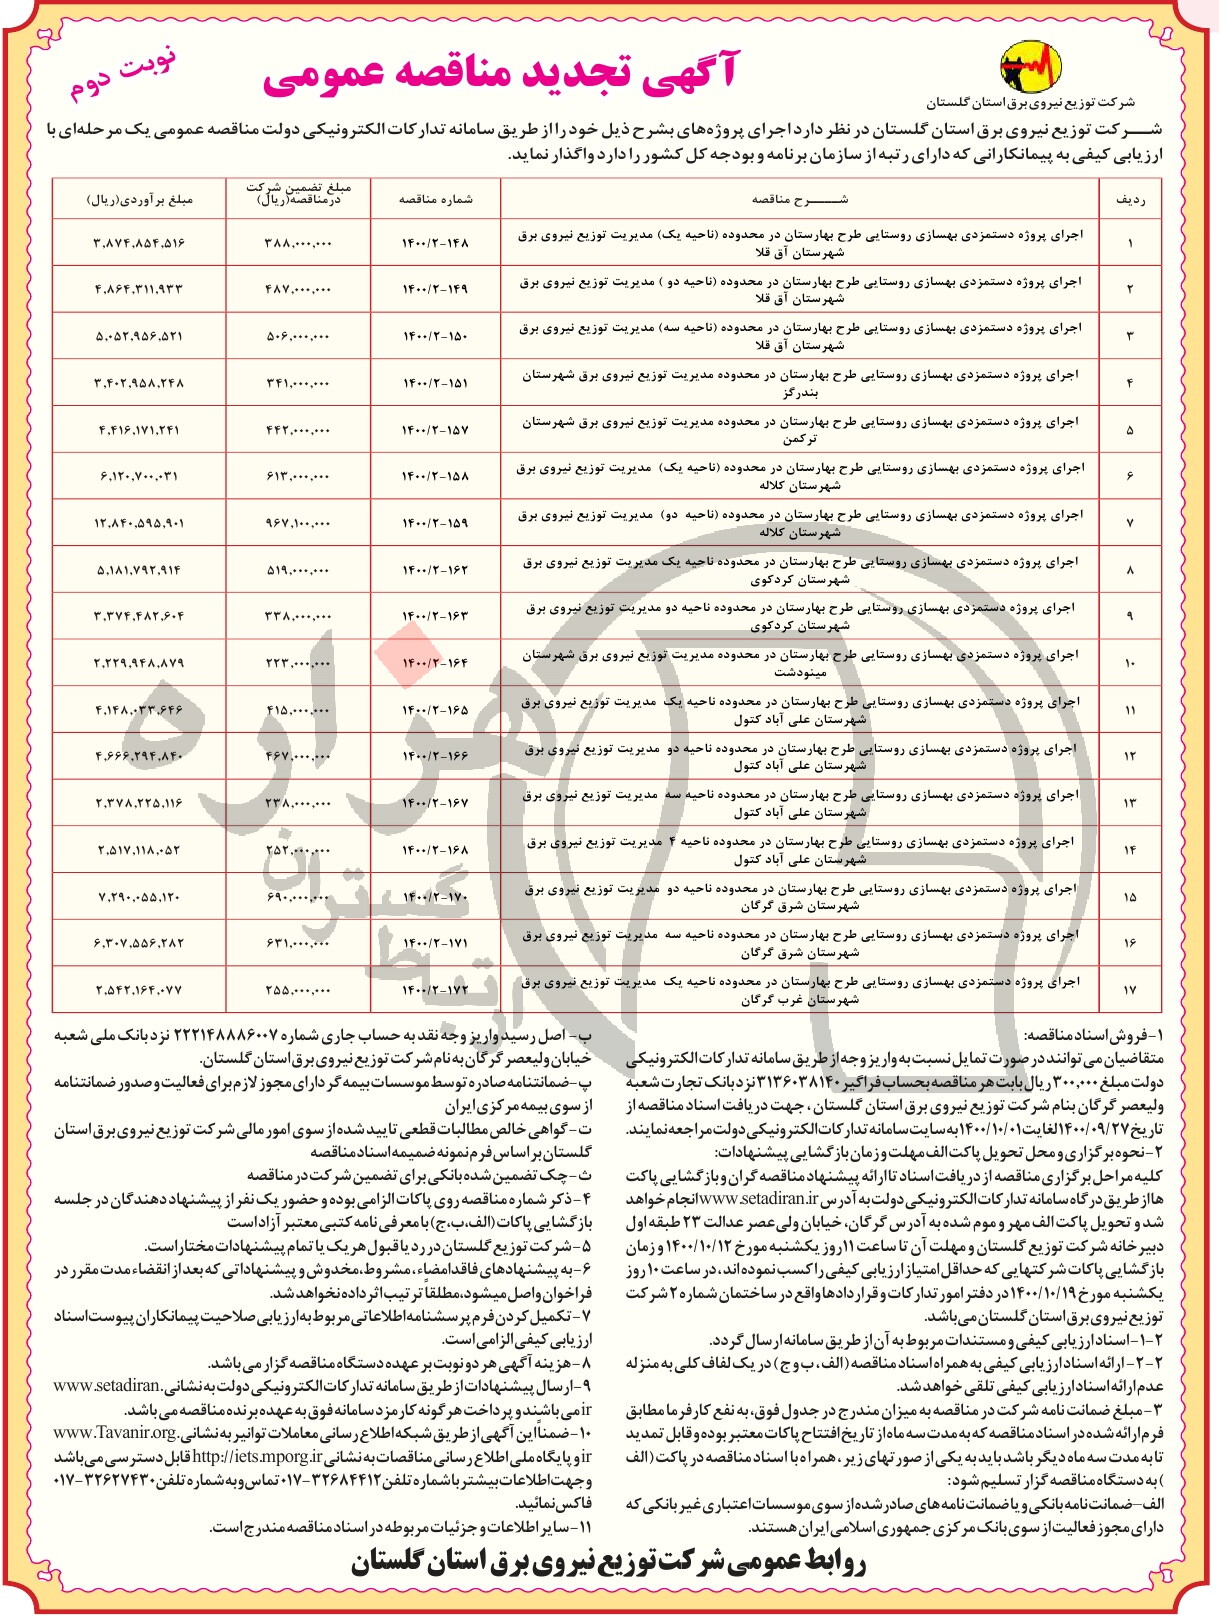 شرکت توزیع نیروی برق استان گلستان
آگهی تجدید مناقصه عمومی
نوبت دوم
شرکت توزیع نیروی برق استان گلستان در نظر دارد اجرای پروژه‌های بشرح ذیل خود را از طریق سامانه تدارکات الکترونیکی دولت مناقصه عمومی یک مرحله‌ای با
ارزیابی کیفی به پیمانکارانی که دارای رتبه از سازمان برنامه و بودجه کل کشور را دارد واگذار نماید.
ردیف شرح مناقصه شماره مناقصه مبلغ تضمین شرکت درمناقصه(ریال) مبلغ برآوردی(ریال)
۱ اجرای پروژه دستمزدی بهسازی روستایی طرح بهارستان در محدوده (ناحیه یک) مدیریت توزیع نیروی برق شهرستان آق قلا ۱۴۰۰/۲-۱۴۸ ۳۸۸,۰۰۰,۰۰۰ ۳,۸۷۴,۸۵۴,۵۱۶
۲ اجرای پروژه دستمزدی بهسازی روستایی طرح بهارستان در محدوده (ناحیه دو ) مدیریت توزیع نیروی برق شهرستان آق قلا ۱۴۰۰/۲-۱۴۹ ۴۸۷,۰۰۰,۰۰۰ ۴,۸۶۴,۳۱۱,۹۳۳
۳ اجرای پروژه دستمزدی بهسازی روستایی طرح بهارستان در محدوده (ناحیه سه) مدیریت توزیع نیروی برق شهرستان آق قلا ۱۴۰۰/۲-۱۵۰ ۵۰۶,۰۰۰,۰۰۰ ۵,۰۵۲,۹۵۶,۵۲۱
۴ اجرای پروژه دستمزدی بهسازی روستایی طرح بهارستان در محدوده مدیریت توزیع نیروی برق شهرستان بندرگز ۱۴۰۰/۲-۱۵۱ ۳۴۱,۰۰۰,۰۰۰ ۳,۴۰۲,۹۵۸,۲۴۸
۵ اجرای پروژه دستمزدی بهسازی روستایی طرح بهارستان در محدوده مدیریت توزیع نیروی برق شهرستان ترکمن ۱۴۰۰/۲-۱۵۷ ۴۴۲,۰۰۰,۰۰۰ ۴,۴۱۶,۱۷۱,۲۴۱
۶ اجرای پروژه دستمزدی بهسازی روستایی طرح بهارستان در محدوده (ناحیه یک) مدیریت توزیع نیروی برق شهرستان کلاله ۱۴۰۰/۲-۱۵۸ ۶۱۳,۰۰۰,۰۰۰ ۶,۱۲۰,۷۰۰,۰۳۱
۷ اجرای پروژه دستمزدی بهسازی روستایی طرح بهارستان در محدوده (ناحیه دو) مدیریت توزیع نیروی برق شهرستان کلاله ۱۴۰۰/۲-۱۵۹ ۹۶۷,۱۰۰,۰۰۰ ۱۲,۸۴۰,۵۹۵,۹۰۱
۸ اجرای پروژه دستمزدی بهسازی روستایی طرح بهارستان در محدوده ناحیه یک مدیریت توزیع نیروی برق شهرستان کردکوی ۱۴۰۰/۲-۱۶۲ ۵۱۹,۰۰۰,۰۰۰ ۵,۱۸۱,۷۹۲,۹۱۴
۹ اجرای پروژه دستمزدی بهسازی روستایی طرح بهارستان در محدوده ناحیه دو مدیریت توزیع نیروی برق شهرستان کردکوی ۱۴۰۰/۲-۱۶۳ ۳۳۸,۰۰۰,۰۰۰ ۳,۳۷۴,۴۸۲,۶۰۴
۱۰ اجرای پروژه دستمزدی بهسازی روستایی طرح بهارستان در محدوده مدیریت توزیع نیروی برق شهرستان مینودشت ۱۴۰۰/۲-۱۶۴ ۲۲۳,۰۰۰,۰۰۰ ۲,۲۲۹,۹۴۸,۸۷۹
۱۱ اجرای پروژه دستمزدی بهسازی روستایی طرح بهارستان در محدوده ناحیه یک مدیریت توزیع نیروی برق شهرستان علی آباد کتول ۱۴۰۰/۲-۱۶۵ ۴۱۵,۰۰۰,۰۰۰ ۴,۱۴۸,۰۳۳,۶۴۶
۱۲ اجرای پروژه دستمزدی بهسازی روستایی طرح بهارستان در محدوده ناحیه دو مدیریت توزیع نیروی برق شهرستان علی آباد کتول ۱۴۰۰/۲-۱۶۶ ۴۶۷,۰۰۰,۰۰۰ ۴,۶۶۶,۲۹۴,۸۴۰
۱۳ اجرای پروژه دستمزدی بهسازی روستایی طرح بهارستان در محدوده ناحیه سه مدیریت توزیع نیروی برق شهرستان علی آباد کتول ۱۴۰۰/۲-۱۶۷ ۲۳۸,۰۰۰,۰۰۰ ۲,۳۷۸,۲۲۵,۱۱۶
۱۴ اجرای پروژه دستمزدی بهسازی روستایی طرح بهارستان در محدوده ناحیه ۴ مدیریت توزیع نیروی برق شهرستان علی آباد کتول ۱۴۰۰/۲-۱۶۸ ۲۵۲,۰۰۰,۰۰۰ ۲,۵۱۷,۱۱۸,۰۵۲
۱۵ اجرای پروژه دستمزدی بهسازی روستایی طرح بهارستان در محدوده ناحیه دو مدیریت توزیع نیروی برق شهرستان شرق گرگان ۱۴۰۰/۲-۱۷۰ ۶۹۰,۰۰۰,۰۰۰ ۷,۲۹۰,۰۵۵,۱۲۰
۱۶ اجرای پروژه دستمزدی بهسازی روستایی طرح بهارستان در محدوده ناحیه سه مدیریت توزیع نیروی برق شهرستان شرق گرگان ۱۴۰۰/۲-۱۷۱ ۶۳۱,۰۰۰,۰۰۰ ۶,۳۰۷,۵۵۶,۲۸۲
۱۷ اجرای پروژه دستمزدی بهسازی روستایی طرح بهارستان در محدوده ناحیه یک مدیریت توزیع نیروی برق شهرستان غرب گرگان ۱۴۰۰/۲-۱۷۲ ۲۵۵,۰۰۰,۰۰۰ ۲,۵۴۲,۱۶۴,۰۷۷
هزاره
گستران
ارتباط
۱-فروش اسناد مناقصه:
متقاضیان می‌توانند در صورت تمایل نسبت به واریز وجه از طریق سامانه تدارکات الکترونیکی
دولت مبلغ ۳۰۰,۰۰۰ ریال بابت هر مناقصه بحساب فراگیر ۳۱۳۶۰۳۸۱۴۰ نزد بانک تجارت شعبه
ولیعصر گرگان بنام شرکت توزیع نیروی برق استان گلستان ، جهت دریافت اسناد مناقصه از
تاریخ ۱۴۰۰/۰۹/۲۷ لغایت ۱۴۰۰/۱۰/۰۱ به سایت سامانه تدارکات الکترونیکی دولت مراجعه نمایند.
۲-نحوه برگزاری و محل تحویل پاکت الف مهلت و زمان بازگشایی پیشنهادات:
کلیه مراحل برگزاری مناقصه از دریافت اسناد تا ارائه پیشنهاد مناقصه گران و بازگشایی پاکت
ها از طریق درگاه سامانه تدارکات الکترونیکی دولت به آدرس www.setadiran.ir انجام خواهد
شد و تحویل پاکت الف مهر و موم شده به آدرس گرگان، خیابان ولی عصر عدالت ۲۳ طبقه اول
دبیرخانه شرکت توزیع گلستان و مهلت آن تا ساعت ۱۱ روز یکشنبه مورخ ۱۴۰۰/۱۰/۱۲ و زمان
بازگشایی پاکات شرکتهایی که حداقل امتیاز ارزیابی کیفی را کسب نموده اند، در ساعت ۱۰ روز
یکشنبه مورخ ۱۴۰۰/۱۰/۱۹ در دفتر امور تدارکات و قراردادها واقع در ساختمان شماره ۲ شرکت
توزیع نیروی برق استان گلستان می‌باشد.
۲-۱-اسناد ارزیابی کیفی و مستندات مربوط به آن از طریق سامانه ارسال گردد.
۲-۲-ارائه اسناد ارزیابی کیفی به همراه اسناد مناقصه (الف، ب و ج) در یک لفاف کلی به منزله
عدم ارائه اسناد ارزیابی کیفی تلقی خواهد شد.
۳-مبلغ ضمانت نامه شرکت در مناقصه به میزان مندرج در جدول فوق، به نفع کارفرما مطابق
فرم ارائه شده در اسناد مناقصه که به مدت سه ماه از تاریخ افتتاح پاکات معتبر بوده و قابل تمدید
تا به مدت سه ماه دیگر باشد باید به یکی از صورتهای زیر، همراه با اسناد مناقصه در پاکت (الف
) به دستگاه مناقصه گزار تسلیم شود:
الف-ضمانت نامه بانکی و یا ضمانت نامه های صادر شده از سوی موسسات اعتباری غیر بانکی که
دارای مجوز فعالیت از سوی بانک مرکزی جمهوری اسلامی ایران هستند.
ب- اصل رسید واریز وجه نقد به حساب جاری شماره ۲۲۲۱۴۸۸۸۶۰۰۷ نزد بانک ملی شعبه
خیابان ولیعصر گرگان به نام شرکت توزیع نیروی برق استان گلستان.
پ-ضمانتنامه صادره توسط موسسات بیمه گر دارای مجوز لازم برای فعالیت و صدور ضمانتنامه
از سوی بیمه مرکزی ایران
ت-گواهی خالص مطالبات قطعی تایید شده از سوی امور مالی شرکت توزیع نیروی برق استان
گلستان بر اساس فرم نمونه ضمیمه اسناد مناقصه
ث-چک تضمین شده بانکی برای تضمین شرکت در مناقصه
۴-ذکر شماره مناقصه روی پاکات الزامی بوده و حضور یک نفر از پیشنهاد دهندگان در جلسه
بازگشایی پاکات (الف،ب،ج) با معرفی نامه کتبی معتبر آزاد است
۵-شرکت توزیع گلستان در رد یا قبول هر یک یا تمام پیشنهادات مختار است.
۶-به پیشنهادهای فاقد امضاء، مشروط، مخدوش و پیشنهاداتی که بعد از انقضاء مدت مقرر در
فراخوان واصل میشود، مطلقاً ترتیب اثر داده نخواهد شد.
۷-تکمیل کردن فرم پرسشنامه اطلاعاتی مربوط به ارزیابی صلاحیت پیمانکاران پیوست اسناد
ارزیابی کیفی الزامی است.
۸-هزینه آگهی هر دو نوبت بر عهده دستگاه مناقصه گزار می باشد.
۹-ارسال پیشنهادات از طریق سامانه تدارکات الکترونیکی دولت به نشانی www.setadiran.
ir می باشند و پرداخت هر گونه کارمزد سامانه فوق به عهده برنده مناقصه می باشد.
۱۰-ضمناً این آگهی از طریق شبکه اطلاع رسانی معاملات توانیر به نشانی www.Tavanir.org.
ir و پایگاه ملی اطلاع رسانی مناقصات به نشانی http://iets.mporg.ir قابل دسترسی می باشد
و جهت اطلاعات بیشتر با شماره تلفن ۳۲۶۸۴۴۱۲-۰۱۷ تماس و به شماره تلفن ۳۲۶۲۷۴۳۰-۰۱۷
فاکس نمائید.
۱۱-سایر اطلاعات و جزئیات مربوطه در اسناد مناقصه مندرج است.
روابط عمومی شرکت توزیع نیروی برق استان گلستان